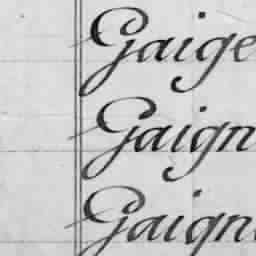 Gaige
Gaign
Gaign